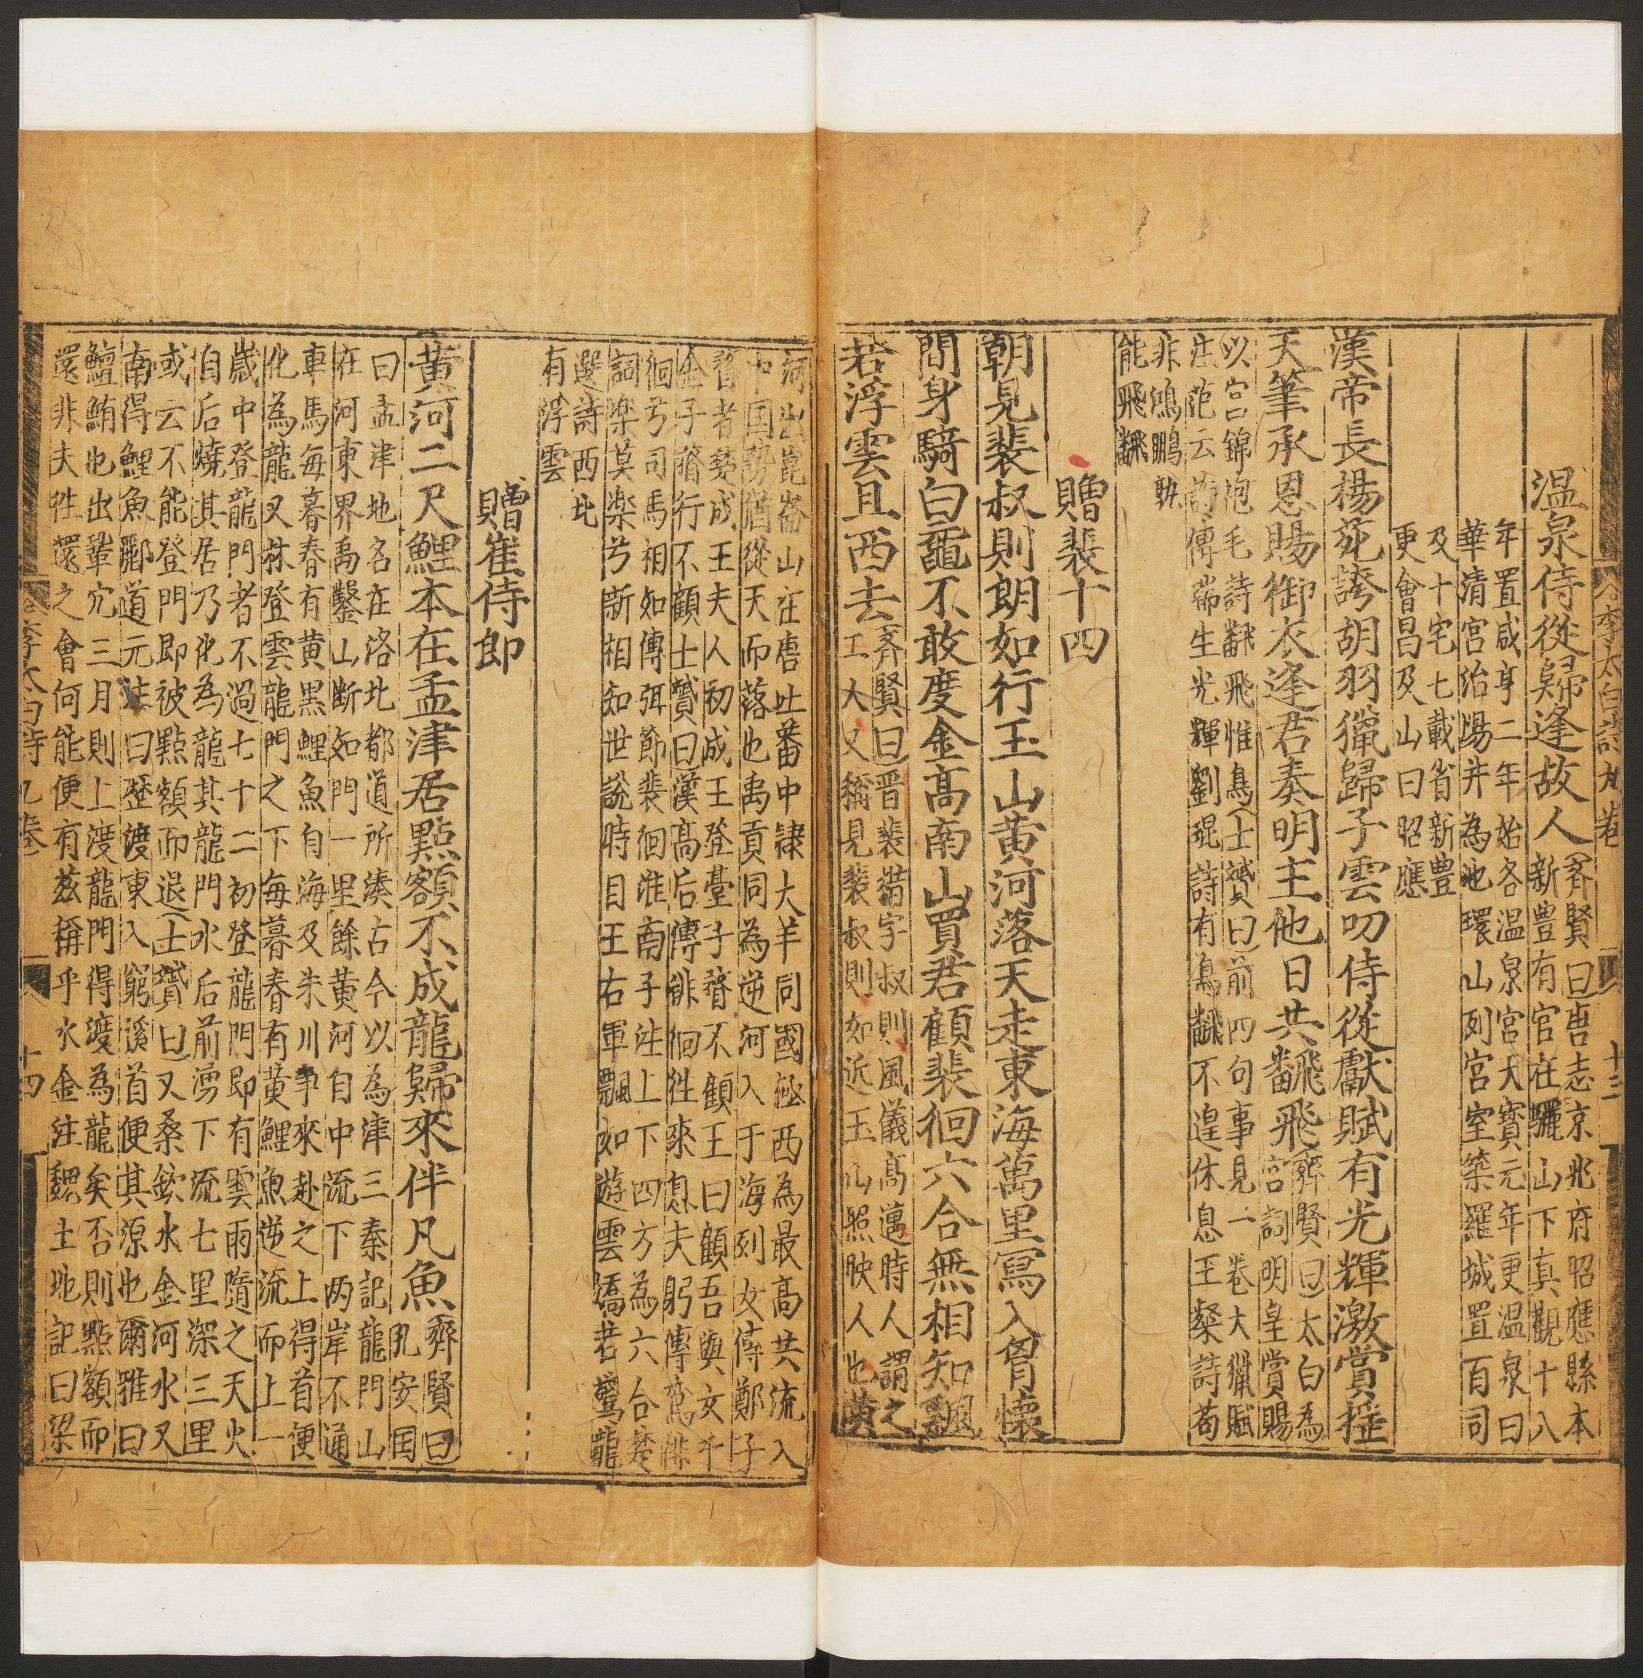 溫泉侍從歸逢故人
齊賢曰唐志京兆府昭應縣本
新豊有宮在驪山下真觀十八
年置咸亨二年始名温泉宮天寳元年更温泉曰
華清宮治湯井為池環山列宮室築羅城置百司
及十宅七載省新豊
更會昌及山曰昭應
漢帝長楊苑誇胡羽獵歸子雲叨侍從獻賦有光輝激賞揺
天筆承恩賜御衣逢君奏明主他日共翻飛
齊賢曰太白為
宮詞明皇賞賜
以宮錦袍毛詩翻飛惟鳥士贇曰前四句事見一卷大獵賦
注范云詩傳瑞生光輝劉琨詩有鳥翻不遑休息王粲詩苟
非鴻鵬孰
能飛翻
贈裴十四
朝見裴叔則朗如行玉山黄河落天走東海萬里冩入胷懷
間身騎白黿不敢度金高南山買君顧裴徊六合無相知飄
若浮雲且西去
齊賢曰晋裴楷字叔則風儀髙邁時人謂之
玉人又稱見裴叔則如近玉山照映人也黄
河出崑崙山在唐吐蕃中隷大羊同國極西為最高共流入
中国勢猶從天而落也禹貢同為逆河入于海列女傳鄭子
瞀者楚成王夫人初成王登臺子瞀不顧王曰顧吾與女千
金子瞀行不顧士贇曰漢高后傳徘徊徃來息夫躬傳鸞俳
徊兮司馬相如傳弭節裴徊淮南子注上下四方為六合楚
詞楽莫楽兮新相知世說時目王右軍飄如遊雲矯若驚龍
選詩西北
有浮雲
贈崔侍郎
黄河二尺鯉本在孟津居點額不成龍歸來伴凡魚
齊賢曰
孔安国
曰孟津地名在洛北都道所湊古今以為津三秦記龍門山
在河東界禹鑿山断如門一里餘黄河自中流下两岸不通
車馬每暮春有黄黒鯉魚自海及朱川爭來赴之上得首便
化為龍又林登雲龍門之下每暮春有黄鯉魚逆流而上一
歳中登龍門者不過七十二初登龍門即有雲雨隨之天火
自后燒其居乃化為龍其龍門水后前湧下流七里深三里
或云不能登門即被點額而退士贇曰又桑欽水金河水又
南得鯉魚酈道元注曰歴澗東入窮溪首便其源也爾雅曰
鱣鮪也出鞏穴三月則上渡龍門得渡為龍矣否則點額而
還非夫徃還之會何能便有兹稱乎水金注魏土地記曰梁